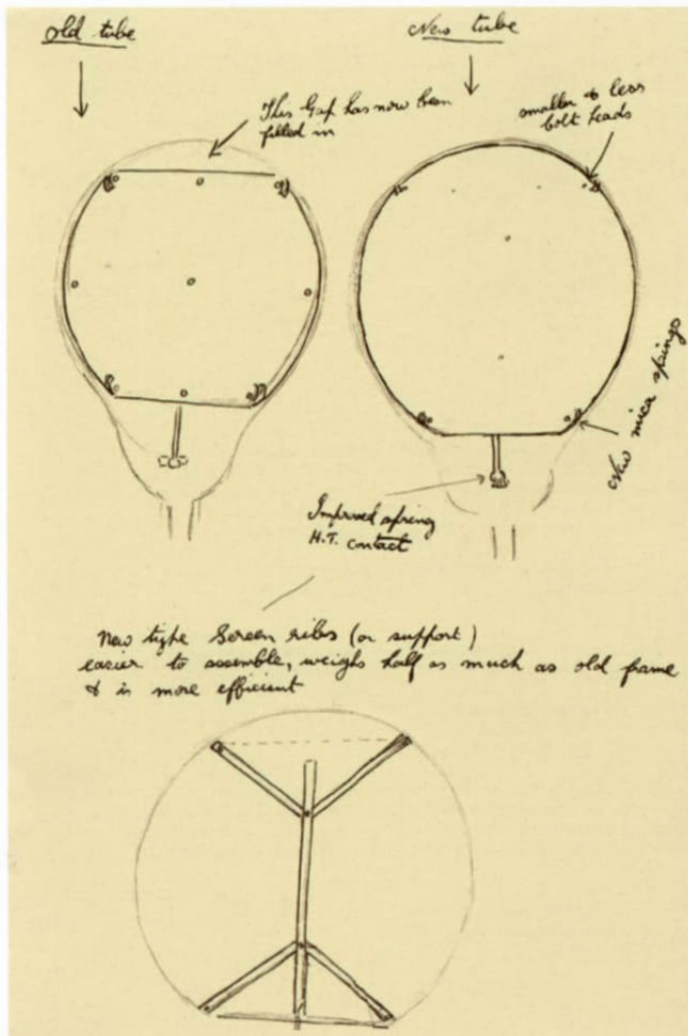 Old tube
New tube
This Gap has now been
filled in
smaller & less
bolt heads
New mica springs
Improved spring
H.T. contact
New type Screen ribs (or support)
easier to assemble, weighs half as much as old frame
& is more efficient